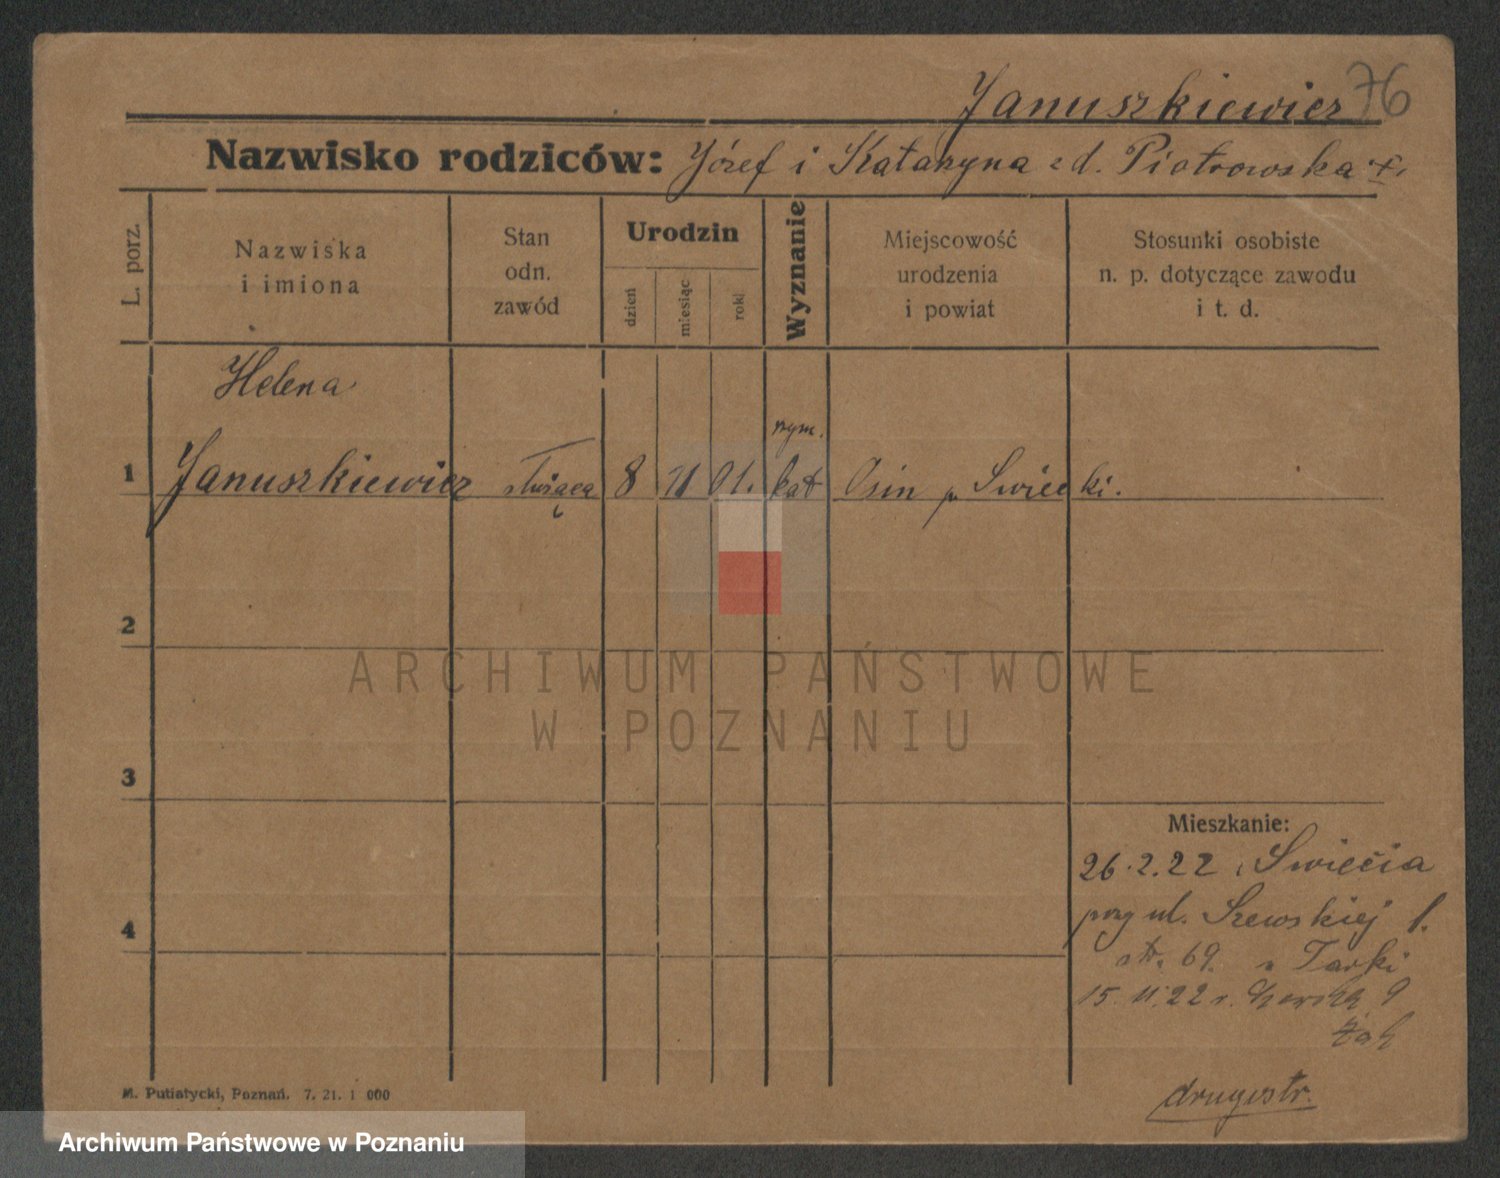 Januszkiewicz 76
Nazwisko rodziców: Józef i Katarzyna z d. Piotrowska
L. porz.
Nazwiska
i imiona
Stan
odn.
zawód
Urodzin
dzień
miesiąc
rok
Wyznanie
Miejscowość
urodzenia
i powiat
Stosunki osobiste
n. p. dotyczące zawodu
i t. d.
Helena
rzym.
1 Januszkiewicz służąca 8 11 01. kat Osin p. Swiecki.
2
3
4
Mieszkanie:
26.2.22 Swiecia
przy ul. Szewskiej
str. 69. Tarki
15.11.22 r. 9
Żak
drugostr.
M. Putiatycki, Poznań. 7. 21. 1 000
ARCHIWUM PAŃSTWOWE
W POZNANIU
Archiwum Państwowe w Poznaniu